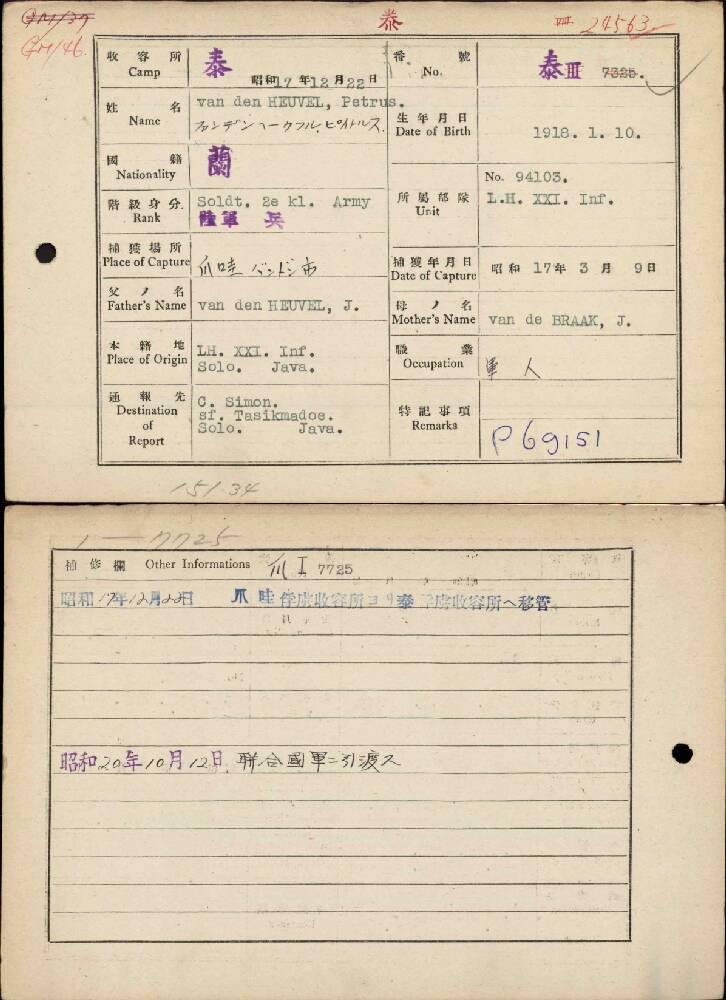 GM/37
GM/46
泰
24563
收容所 Camp 泰 昭和17年12月22日
番號 No. 泰III 7325.
姓名 Name van den HEUVEL, Petrus.
生年月日 Date of Birth 1918. 1. 10.
國籍 Nationality 蘭
階級身分 Rank Soldt. 2e kl. Army
陸軍 兵
所屬部隊 Unit No. 94103.
L.H. XXI. Inf.
捕獲場所 Place of Capture 爪哇 バンドン市
捕獲年月日 Date of Capture 昭和17年3月9日
父ノ名 Father's Name van den HEUVEL, J.
母ノ名 Mother's Name van de BRAAK, J.
本籍地 Place of Origin LH. XXI. Inf.
Solo. Java.
職業 Occupation 軍人
通報先 Destination of Report C. Simon.
sf. Tasikmadoe.
Solo. Java.
特記事項 Remarks P69151
151 34
1 — 7725
補修欄 Other Informations 爪 I 7725
昭和17年12月22日 爪哇俘虜收容所ヨリ泰俘虜收容所ヘ移管
昭和20年10月12日 聯合國軍ニ引渡ス